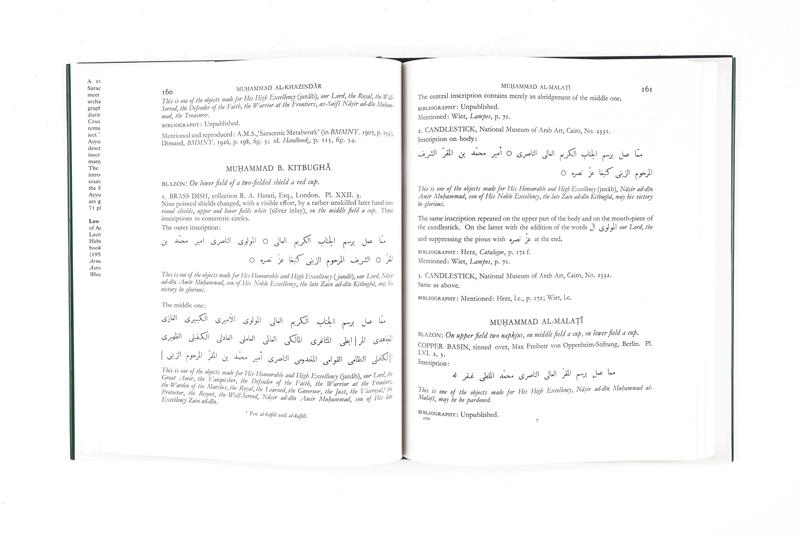 160
MUḤAMMAD AL-KHAZINDĀR
This is one of the objects made for His High Excellency (janāb), our Lord, the Royal, the Well-
Served, the Defender of the Faith, the Warrior at the Frontiers, as-Saifī Nāṣir ad-dīn Muḥam-
mad, the Treasurer.
BIBLIOGRAPHY: Unpublished.
Mentioned and reproduced: A.M.S., 'Saracenic Metalwork' (in BMMNY. 1907, p. 152);
Dimand, BMMNY. 1926, p. 198, fig. 3; id. Handbook, p. 115, fig. 54.
MUḤAMMAD B. KITBUGHĀ
BLAZON: On lower field of a two-fielded shield a red cup.
1. BRASS DISH, collection R. A. Harari, Esq., London. Pl. XXII. 3.
Nine pointed shields changed, with a visible effort, by a rather unskilled later hand into
round shields, upper and lower fields white (silver inlay), on the middle field a cup. Three
inscriptions in concentric circles.
The outer inscription:
ممّا عمل برسم الجناب الكريم العالى ○ المولوى الناصرى امير محمد بن
المقرّ ○ الشريف المرحوم الزينى كتبغا عزّ نصره ○
This is one of the objects made for His Honourable and High Excellency (janāb), our Lord, Nāṣir
ad-dīn Amīr Muḥammad, son of His Noble Excellency, the late Zain ad-dīn Kitbughā, may his
victory be glorious.
The middle one:
ممّا عمل برسم الجناب الكريم العالى المولوى الأميرى الكبيرى الغازى
المجاهدى المرابطى المثاغرى المالكى العالمى العاملى العادلى الكفيلى الظهيرى
الكافلى النظامى القوامى المخدومى الناصرى أمير محمد بن المقرّ المرحوم الزينى
This is one of the objects made for His Honourable and High Excellency (janāb), our Lord, the
Great Amir, the Vanquisher, the Defender of the Faith, the Warrior at the Frontiers,
the Warden of the Marches, the Royal, the Learned, the Governor, the Just, the Viceroyal, the
Protector, the Regent, the Well-Served, Nāṣir ad-dīn Amīr Muḥammad, son of His late
Excellency Zain ad-dīn.
¹ For al-kāfilī and al-kafīlī.
MUḤAMMAD AL-MALAṬĪ
161
The central inscription contains merely an abridgement of the middle one.
BIBLIOGRAPHY: Unpublished.
Mentioned: Wiet, Lampes, p. 71.
2. CANDLESTICK, National Museum of Arab Art, Cairo, No. 2331.
Inscription on body:
ممّا عمل برسم الجناب الكريم العالى الناصرى ○ أمير محمد بن المقر الشريف
المرحوم الزينى كتبغا عزّ نصره ○
This is one of the objects made for His Honourable and High Excellency (janāb), Nāṣir ad-dīn
Amīr Muḥammad, son of His Noble Excellency, the late Zain ad-dīn Kitbughā, may his victory
be glorious.
The same inscription repeated on the upper part of the body and on the mouth-piece of
the candlestick. On the latter with the addition of the words المولوى our Lord, the
and suppressing the pious wish عزّ نصره at the end.
BIBLIOGRAPHY: Herz, Catalogue, p. 172 f.
Mentioned: Wiet, Lampes, p. 71.
3. CANDLESTICK, National Museum of Arab Art, Cairo, No. 2332.
Same as above.
BIBLIOGRAPHY: Mentioned: Herz, l.c., p. 172; Wiet, l.c.
MUḤAMMAD AL-MALAṬĪ
BLAZON: On upper field two napkins, on middle field a cup, on lower field a cup.
COPPER BASIN, tinned over, Max Freiherr von Oppenheim-Stiftung, Berlin. Pl.
LVI. 2, 5.
Inscription:
مما عمل برسم المقرّ العالى الناصرى محمّد الملطى غفر له
This is one of the objects made for His High Excellency, Nāṣir ad-dīn Muḥammad al-
Malaṭī, may he be pardoned.
BIBLIOGRAPHY: Unpublished.
Y